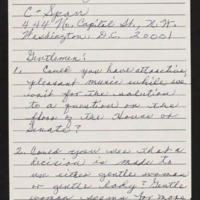 C-Span
444 No. Capitol St., N.W.
Washington, D.C. 20001
Gentlemen:
1. Could you have attractive,
pleasant music while we
wait for the solution
to a question on the
floor of the House or
Senate?
2. Could you see that a
decision is made to
use either gentle woman
or gentle lady? Gentle
woman seems far more